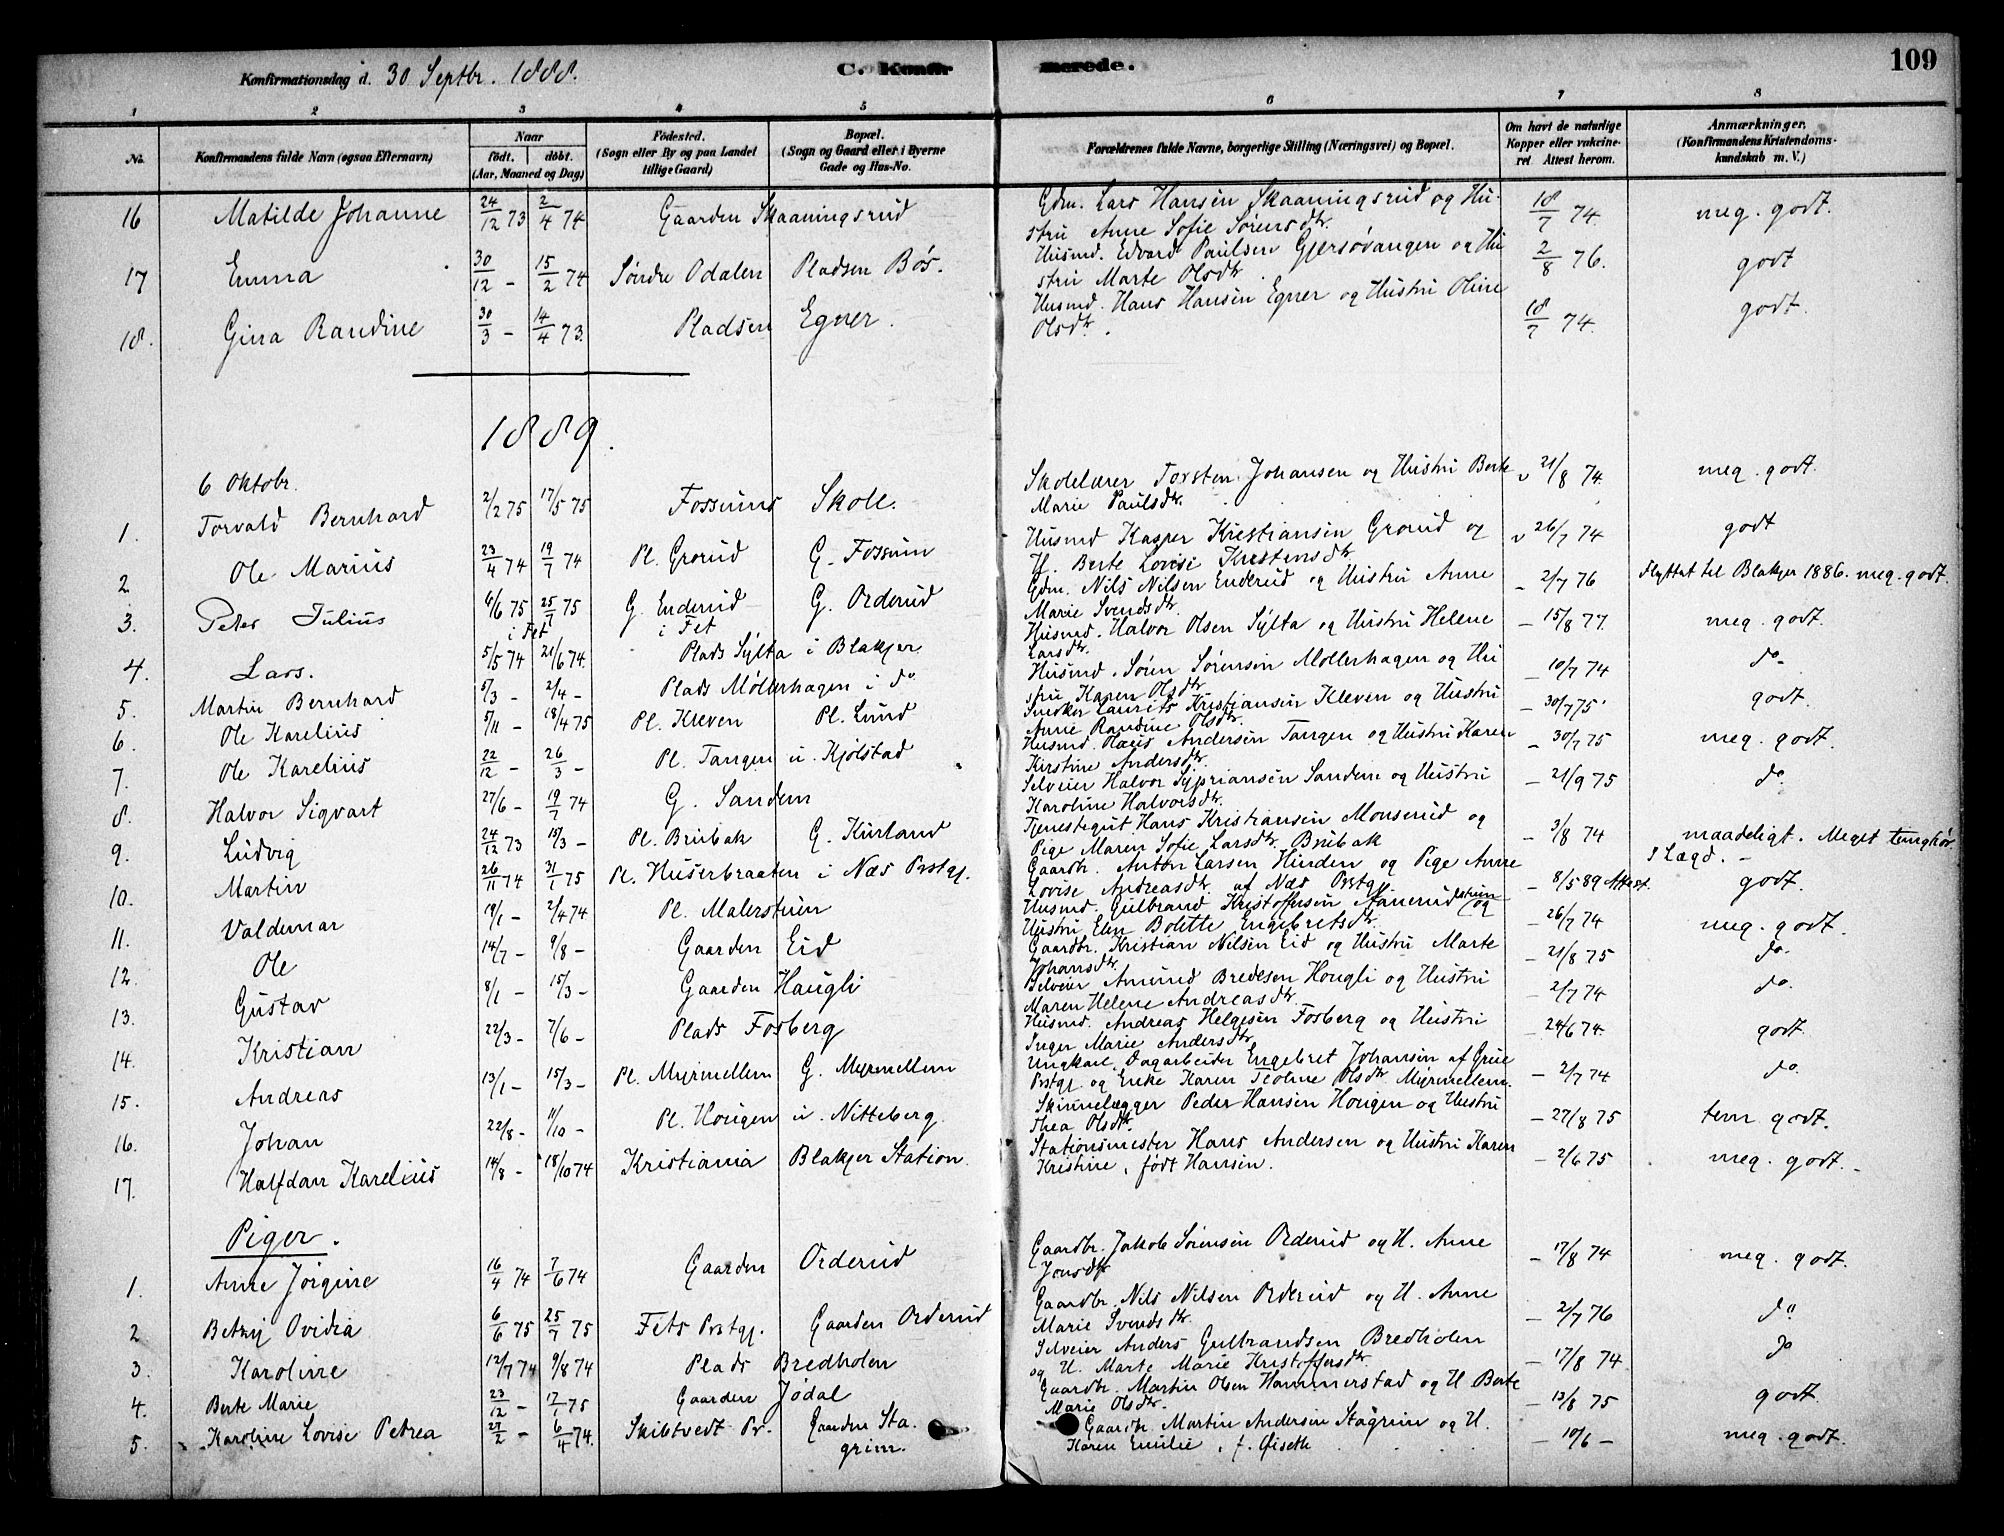 109
Konfirmationsdag d. 30 Septbr. 1888.
C. Konfirmerede.
1 2 3 4 5 6 7 8
No. Konfirmandens fulde Navn (ogsaa Efternavn) Naar født. døbt. (Aar, Maaned og Dag) Fødested. (Sogn eller By og paa Landet tillige Gaard) Bopæl. (Sogn og Gaard eller i Byerne Gade og Hus-No. Forældrenes fulde Navne, borgerlige Stilling (Næringsvei) og Bopæl. Om havt de naturlige Kopper eller vakcineret Attest herom. Anmærkninger. (Konfirmandens Kristendomskundskab m. V.)
16 Matilde Johanne 24/12 73 2/4 74 Gaarden Skaaningsrud Gdm. Lars Hansen Skaaningsrud og Hustru Anne Sofie Sørensdtr. 18/7 74 meg. godt.
17 Emma 30/12 - 15/2 74 Søndre Odalen Pladsen Bøs. Husmd. Edvard Paulsen Gjersøvangen og Hustru Marte Olsdtr. 2/8 76. godt
18. Gina Randine 30/3 - 14/4 73. Pladsen Egner. Husmd. Hans Hansen Egner og Hustru Oline Olsdtr. 18/7 74. godt.
1889.
6 Oktobr.
1. Torvald Bernhard 2/2 75 17/5 75 Fossums Skole. Skolelærer Torsten Johansen og Hustru Berte Marie Paulsdtr. v 21/8 74. meg. godt.
2 Ole Marius 23/4 74 19/7 74 Pl. Grorud G. Fossum Husmd Kasper Kristiansen Grorud og H. Berte Lovise Kristensdtr v 26/7 74 godt
3. Peter Julius 6/6 75 25/7 75 i Fet G. Enderud i Fet G. Orderud Gdm. Nils Nilsen Enderud og Hustru Anne Marie Svendsdtr. - 2/7 76 Flyttet til Blakjer 1886. meg. godt.
4. Lars. 5/5 74 21/6 74. Plads Sylta i Blakjer Husmd. Halvor Olsen Sylta og Hustru Helene Larsdtr. - 15/8 77. meg. godt.
5. Martin Bernhard 5/3 - 2/4 - Plads Møllerhagen i do Husmd. Søren Sørensen Møllerhagen og Hustru Karen Olsdtr - 10/7 74 do-
6. Ole Karelius 5/11 - 18/4 75 Pl. Kleven Pl. Lund Snedker Laurits Kristiansen Kleven og Hustru Anne Randine Olsdtr. - 30/7 75 godt.
7. Ole Karelius 22/12 - 26/3 - Pl. Tangen u. Kjølstad Husmd. Olaus Andersen Tangen og Hustru Karen Kirstine Andersdtr. - 30/7 75 meg. godt.
8. Halvor Sigvart 27/6 - 19/7 74 G. Sandem Selveier Halvor Sypriansen Sandem og Hustru Karoline Halvorsdtr. - 21/9 75 do
9. Ludvig 24/12 73 15/3 - Pl. Brubak G. Kurland Tjenestegut Hans Kristiansen Monserud og Pige Maren Sofie Larsdtr. Brubak - 3/8 74 maadeligt. Meget tunghør. I Lægd. -
10. Martin 26/11 74 31/1 75 Pl. Huserbraaten i Næs Prstgj. Gaardbr. Anton Larsen Hinden og Pige Anne Lovise Andreasdtr. af Næs Prstgj. - 8/5 89 Attest. godt.
11. Valdemar 19/1 - 2/4 74 Pl. Malerstuen Husmd. Gulbrand Kristoffersen og Hustru Elen Bolette Engebretsdtr. - 26/7 74 meg. godt.
12. Ole 14/7 - 9/8 - Gaarden Eid Gaardbr. Kristian Nilsen Eid og Hustru Marte Johansdtr. - 21/8 75 do.
13. Gustav 8/1 - 15/3 - Gaarden Haugli Selveier Amund Bredesen Hougli og Hustru Maren Helene Andreasdtr. - 2/7 74 do.
14. Kristian 22/3 - 7/6 - Plads Fosberg Husmd. Andreas Helgesen Fosberg og Hustru Inger Marie Andersdtr. - 24/6 74. godt
15. Andreas 13/1 - 15/3 - Pl. Myrmellem G. Myrmellem Ungkarl, Dagarbeider Engebret Johansen af Grue Prstgj. og Enke Karen Teoline Olsdtr Myrmellem. - 2/7 74 do.
16. Johan 22/8 - 11/10 - Pl. Hougen u. Nitteberg. Skinnelægger Peder Hansen Hougen og Hustru Thea Olsdtr. - 27/8 75 tem godt.
17. Halfdan Karelius 14/8 - 18/10 74 Kristiania Blakjer Station Stationsmester Hans Andersen og Hustru Karen Kristine, født Hansen. - 2/6 75 meg. godt. -
Piger.
1. Anne Jørgine 16/4 74 7/6 74 Gaarden Orderud Gaardbr. Jakob Sørensen Orderud og H. Anne Jonsdtr - 17/8 74 meg. godt.
2 Betsy Ovidia 6/6 75 25/7 75 Fets Prstgj. Gaarden Orderud Gaardbr. Nils Nilsen Orderud og H. Anne Marie Svendsdtr. - 2/7 76 do
3. Karoline 12/7 74 9/8 74 Plads Bredholen Selveier Anders Gulbrandsen Bredholen og H. Marte Marie Kristoffersdtr. - 17/8 74 do
4. Berte Marie 23/12 - 17/1 75 Gaarden Jødal Gaardbr. Martin Olsen Hammerstad og H Berte Marie Olsdtr. - 13/8 75 godt.
5. Karoline Lovise Petrea 27/2 - 6/4 74. Skibtvedt Pr. Gaarden Stagrim. Gaardbr. Martin Andersen Stagrim og H. Karen Emilie, f. Øiseth - 10/6 - meg. godt.